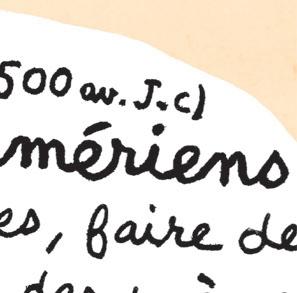 500 av. J.C)
mériens
es, faire de
des